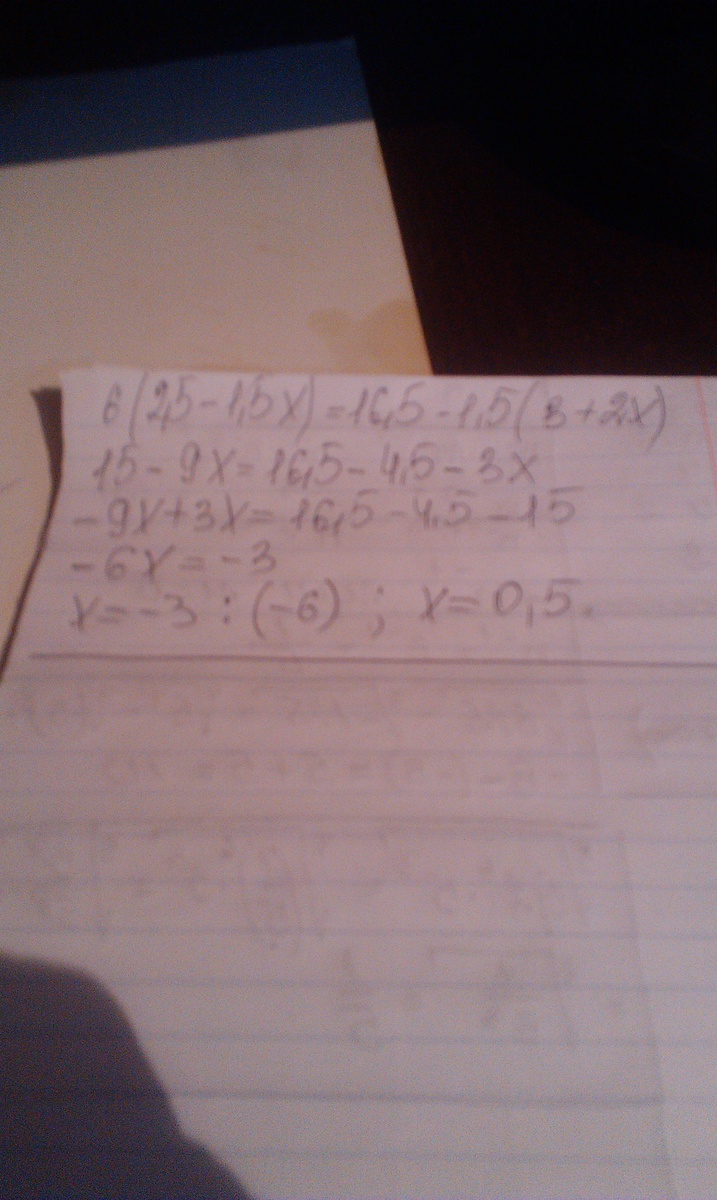 6(2,5-1,5x)=16,5-1,5(3+2x)
15-9x=16,5-4,5-3x
-9x+3x=16,5-4,5-15
-6x=-3
x=-3:(-6); x=0,5.